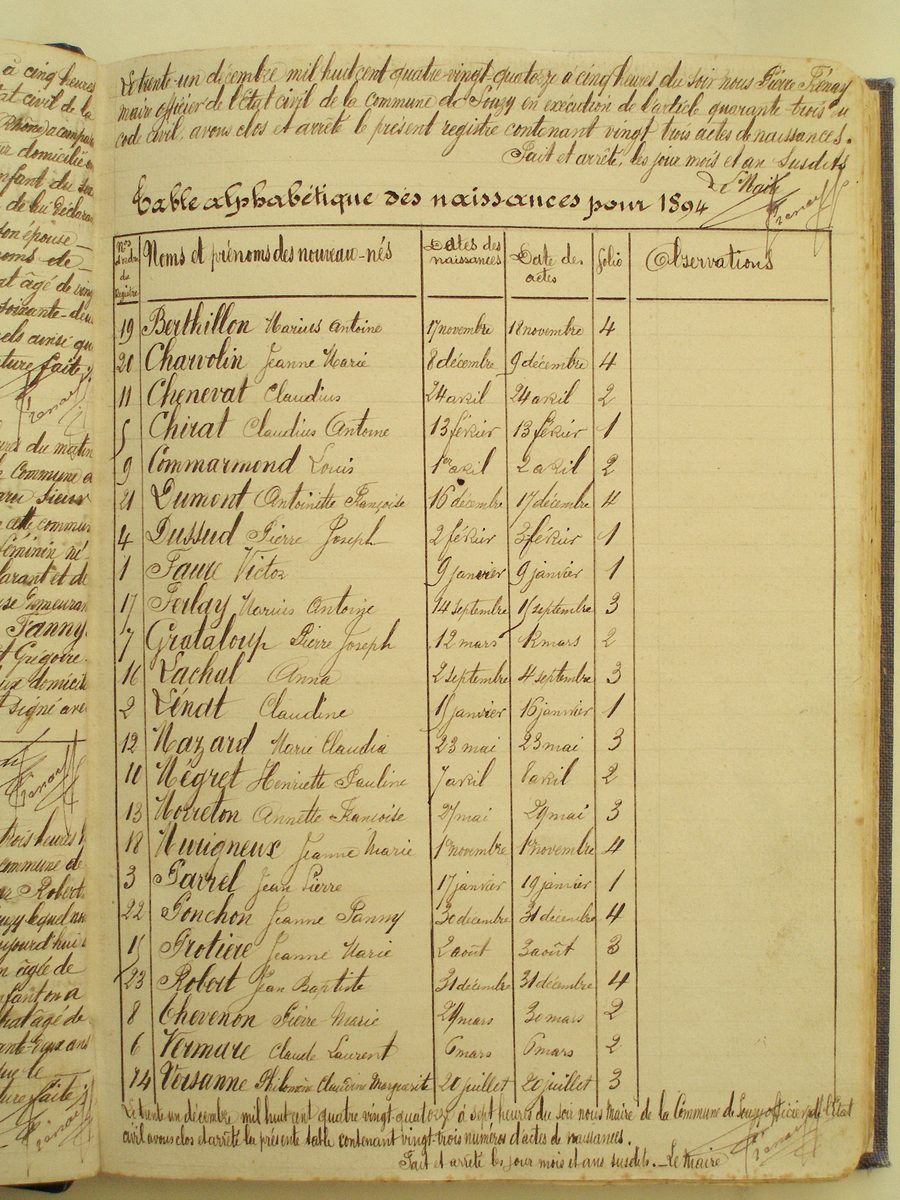 à cinq heures
état civil de la
Rhône) a comparu
domicilié
enfant du sexe
de lui déclarant
son épouse
noms de
et âgé de vingt
soixante-deux
ainsi qu
lecture faite
du matin
Commune
Sieur
commune
féminin né
déclarant et de
demeurant
Fanny
Grégoire
domicilié
signé avec
trois heures
commune de
Robert
Souzy lequel nous
aujourd'hui
âgée de
enfant on a
âgé de
ans
lecture faite
Le trente-un décembre mil huit cent quatre-vingt-quatorze à cinq heures du soir nous Pierre Frénay
maire officier de l'État civil de la commune de Souzy en exécution de l'article quarante-trois du
code civil, avons clos et arrêté le présent registre contenant vingt trois actes de naissances.
Fait et arrêté, les jour mois et an susdits
Table alphabétique des naissances pour 1894
Nos d'ordre du Registre Noms et prénoms des nouveau-nés Dates des naissances Date des actes folio Observations
19 Berthillon Marius Antoine 17 novembre 18 novembre 4
20 Charvolin Jeanne Marie 8 décembre 9 décembre 4
11 Chenevat Claudius 24 avril 24 avril 2
5 Chirat Claudius Antoine 13 février 13 février 1
9 Commarmond Louis 1er avril 2 avril 2
21 Dumont Antoinette Françoise 16 décembre 17 décembre 4
4 Dussud Pierre Joseph 2 février 3 février 1
1 Faure Victor 9 janvier 9 janvier 1
17 Ferlay Marius Antoine 14 septembre 15 septembre 3
7 Grataloup Pierre Joseph 12 mars 12 mars 2
16 Lachal Anna 2 septembre 4 septembre 3
2 Lénat Claudine 15 janvier 16 janvier 1
12 Mazard Marie Claudia 23 mai 23 mai 3
10 Mégret Henriette Pauline 7 avril 8 avril 2
13 Moreton Annette Françoise 27 mai 29 mai 3
18 Murigneux Jeanne Marie 1er novembre 1er novembre 4
3 Parrel Jean Pierre 17 janvier 19 janvier 1
22 Ponchon Jeanne Fanny 30 décembre 31 décembre 4
15 Protière Jeanne Marie 2 août 3 août 3
23 Robert Jean Baptiste 31 décembre 31 décembre 4
8 Thevenon Pierre Marie 29 mars 30 mars 2
6 Vermare Claude Laurent 6 mars 6 mars 2
14 Voisanne Philomène Claudine Marguerite 20 juillet 20 juillet 3
Le trente un décembre mil huit cent quatre vingt-quatorze à sept heures du soir nous Maire de la Commune de Souzy officier de l'État
civil avons clos et arrêté la présente table contenant vingt-trois numéros d'actes de naissances.
Fait et arrêté les jour mois et ans susdits. — Le Maire